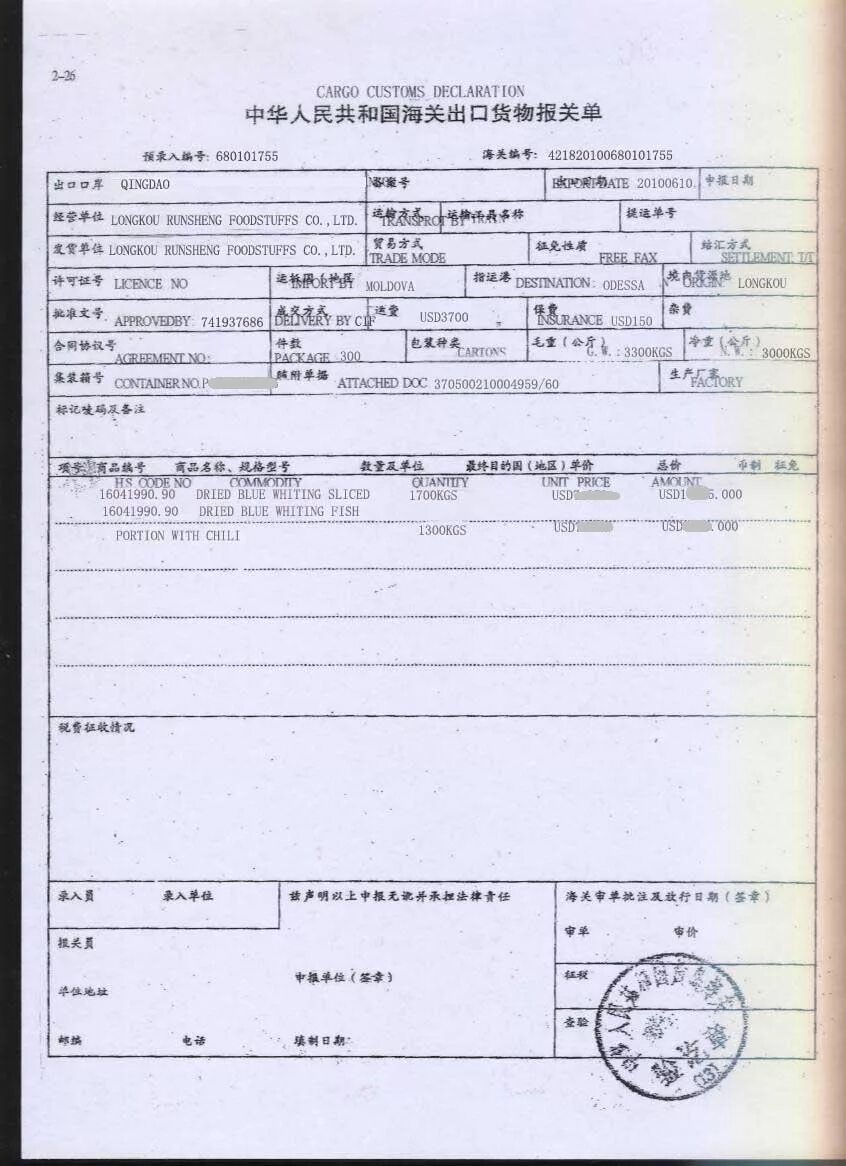 2-26
CARGO CUSTOMS DECLARATION
中华人民共和国海关出口货物报关单
预录入编号: 680101755 海关编号: 421820100680101755
出口口岸 QINGDAO 备案号 EXPORT DATE 20100610. 申报日期
经营单位 LONGKOU RUNSHENG FOODSTUFFS CO.,LTD. 运输方式 运输工具名称 提运单号
TRANSPROT BY
发货单位 LONGKOU RUNSHENG FOODSTUFFS CO.,LTD. 贸易方式 征免性质 结汇方式
TRADE MODE FREE FAX SETTLEMENT T/T
许可证号 LICENCE NO 运抵国(地区) IMPORT BY MOLDOVA 指运港 DESTINATION: ODESSA 境内货源地 ORIGIN: LONGKOU
批准文号 成交方式 运费 USD3700 保费 杂费
APPROVEDBY: 741937686 DELIVERY BY CIF INSURANCE USD150
合同协议号 件数 包装种类 毛重(公斤) 净重(公斤)
AGREEMENT NO: PACKAGE 300 CARTONS G.W.:3300KGS N.W.: 3000KGS
集装箱号 CONTAINER NO.P 随附单据 ATTACHED DOC 370500210004959/60 生产厂家
FACTORY
标记唛码及备注
项号 商品编号 商品名称、规格型号 数量及单位 最终目的国(地区)单价 总价 币制 征免
H.S. CODE NO COMMODITY QUANTITY UNIT PRICE AMOUNT
16041990.90 DRIED BLUE WHITING SLICED 1700KGS USD USD1 5.000
16041990.90 DRIED BLUE WHITING FISH
PORTION WITH CHILI 1300KGS USD USD .000
税费征收情况
录入员 录入单位 兹声明以上申报无讹并承担法律责任 海关审单批注及放行日期(签章)
审单 审价
报关员
申报单位(签章) 征税
单位地址
查验
邮编 电话 填制日期